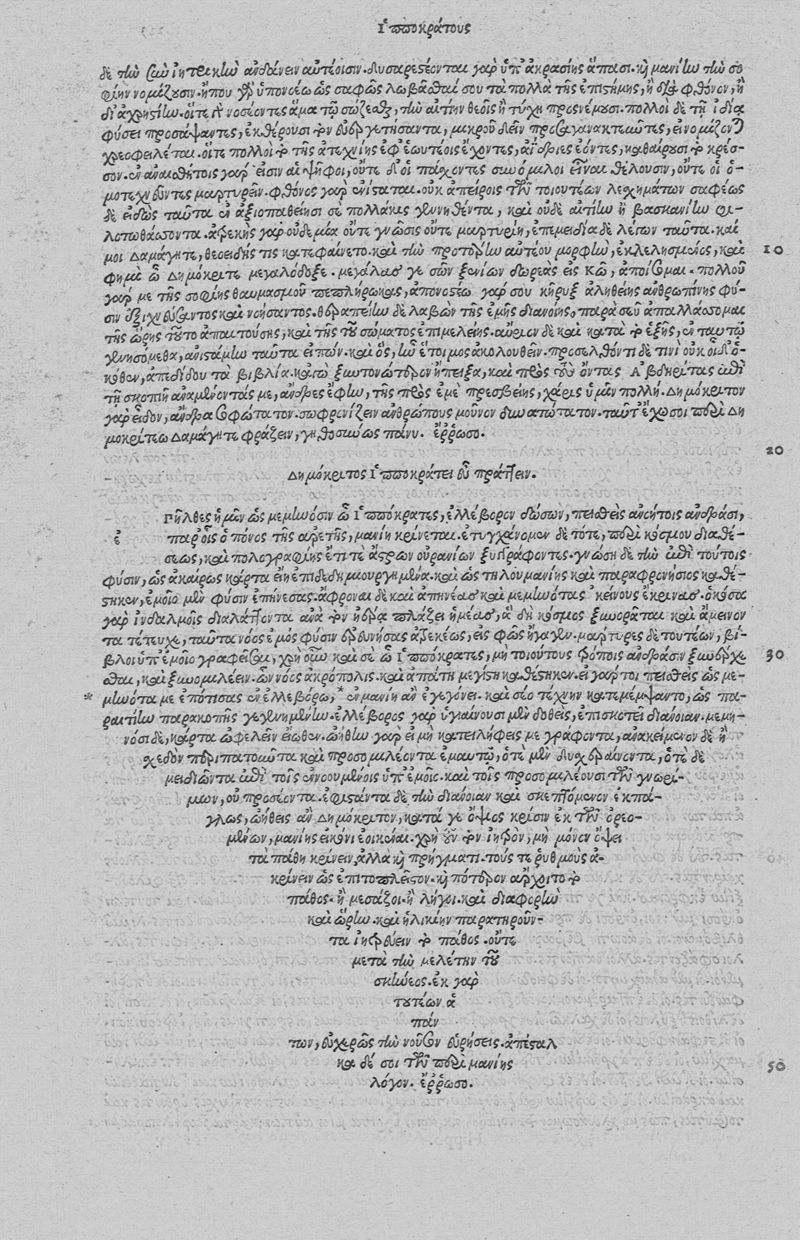 Ἱπποκράτους
δὲ τὴν ξὺν ἰητρικῇ ἁνδάνειν αὐτέοισιν. δυσαρεστέονται γὰρ ὑπ' ἀκρασίης ἅπασι. καὶ μανίην τὴν σο
φίην νομίζουσιν. ἤπου γὰρ ὑπονοέω ὡς σαφῶς λωβᾶσθαί σου τὰ πολλὰ τῆς ἐπιστήμης, ἢ διὰ φθόνον, ἢ
δι' ἀχρηστίην. οἵτε γὰρ νοσέοντες ἅμα τῷ σώζεσθαι, τὴν αἰτίην θεοῖς ἢ τύχῃ προσνέμουσι. πολλοὶ δὲ τῇ ἰδίᾳ
φύσει προσάψαντες, ἐχθαίρουσι τὸν εὐεργετήσαντα, μικροῦ δεῖν προσαγανακτεῦντες, εἰ νομίζονται
χρεοφειλέται. οἵτε πολλοὶ τὸ τῆς ἀτεχνίης ἐφ' ἑωυτέοις ἔχοντες, ἀΐδριες ἐόντες, καθαίρουσι τὸ κρέσ-
σον. ἐν ἀναισθήτοις γάρ εἰσιν αἱ ψῆφοι, οὔτε δ' οἱ πάσχοντες συνομιλοῖ εἶναι θέλουσιν, οὔτε οἱ ὁ-
μοτεχνεῦντες μαρτυρεῖν. φθόνος γὰρ ἐνίσταται. οὐκ ἀπείροις τῶν τοιουτέων λεσχημάτων σαφέως
δὲ εἰδὼς ταῦτα ἐν ἀξιοπαθείησί σε πολλάκις γεννηθέντα, καὶ οὐδὲ αἰτίην ἢ βασκανίην φι-
λοτωθάσοντα. ἀτρεκὴς γὰρ οὐδεμία οὔτε γνῶσις οὔτε μαρτυρίη, ἐπεμειδία δὲ λέγων ταῦτα. καί
μοι Δαμάγητε, θεοειδής τις κατεφαίνετο. καὶ τὴν προτέρην αὐτέου μορφὴν, ἐκλελησμένος, καὶ 10
φημὶ ὦ Δημόκριτε μεγαλόδοξε. μεγάλας γε σῶν ξενίων δωρεὰς εἰς Κῶ, ἀποίσομαι. πολλοῦ
γάρ με τῆς σοφίης θαυμασμοῦ πεπλήρωκας, ἀπονοστέω γάρ σου κῆρυξ ἀληθείης ἀνθρωπίνης φύ-
σιν ἐξιχνεύσαντος καὶ νοήσαντος. θεραπείην δὲ λαβὼν τῆς ἐμῆς διανοίης, παρὰ σεῦ ἀπαλλάσσομαι
τῆς ὥρης τοῦτο ἀπαιτούσης, καὶ τῆς τοῦ σώματος ἐπιμελείης. αὔριον δὲ καὶ κατὰ τὸ ἑξῆς, ἐν ταυτῷ
γενησόμεθα, ἀνιστάμην ταῦτα εἰπών. καὶ ὃς, ἦν ἕτοιμος ἀκολουθεῖν. προσελθόντι δέ τινι οὐκ οἶδ' ὁ-
κόθεν, ἀπεδίδου τὰ βιβλία. κἀγὼ ξυντονώτερον ἤπειξα, καὶ πρὸς τοὺς ὄντας Ἀβδηρίτας ἐπὶ
τῇ σκοπιῇ ἀναμένοντάς με, ἄνδρες ἔφην, τῆς πρὸς ἐμὲ πρεσβείης, χάρις ὑμῖν πολλή. Δημόκριτον
γὰρ εἶδον, ἄνδρα σοφώτατον. σωφρονίζειν ἀνθρώπους μοῦνον δυνατώτατον. ταῦτ' ἔχω σοι περὶ Δη
μοκρίτεω Δαμάγητε φράζειν, γηθοσύνως πάνυ. ἔῤῥωσο.
20
Δημόκριτος Ἱπποκράτει εὖ πράττειν.
ἐ Πῆλθες ἡμῖν ὡς μεμηνόσιν ὦ Ἱππόκρατες, ἐλλέβορον δώσων, πεισθεὶς ἀνοήτοις ἀνδράσι,
παρ' οἷς ὁ πόνος τῆς ἀρετῆς, μανίη κρίνεται. ἐτυγχάνομεν δὲ τότε, περὶ κόσμου διαθέ-
σεως, καὶ πολογραφίης ἔτι τε ἄστρων οὐρανίων ξυγγράφοντες. γνώσῃ δὲ τὴν ἐπὶ τούτοις
φύσιν, ὡς ἀκαίρως κάρτα εἴη ἐπιδεδημιουργημένα. καὶ ὡς τηλοῦ μανίης καὶ παραφρονήσιος καθέ-
στηκεν, ἐμοῖο μὲν φύσιν ἐπῄνεσας. ἄφρονας δὲ καὶ ἀπηνέας καὶ μεμηνότας κείνους ἔκρινας. ὁκόσα
γὰρ ἰνδαλμοῖς διαλάττοντα ἀνὰ τὸν ἠέρα πλάζει ἡμέας, ἃ δὴ κόσμος ξυνορᾶται καὶ ἄμεινον
τὰ τέτευχε, ταῦτα νόος ἐμὸς φύσιν ἐρευνήσας ἀτρεκέως, εἰς φῶς ἤγαγεν. μάρτυρες δὲ τουτέων, βί-
βλοι ὑπ' ἐμοῖο γραφεῖσαι, χρὴ οὖν καὶ σὲ ὦ Ἱππόκρατες, μὴ τοιούτοις τρόποις ἀνδράσιν ξυνέρχε 30
σθαι, καὶ ξυνομιλέειν. ὧν νόος ἀκρόπολις. καὶ ἀπάτη μεγίστη καθέστηκεν. εἰ γάρ τοι πεισθεὶς ὡς με-
* μηνότα με ἐπότισας ἐν ἐλλεβόρῳ, * ἐν μανίῃ ἂν ἐγεγόνει. καὶ σέο τέχνην κατεμέμψαντο, ὡς πα-
ραιτίην παρακοπῆς γεγενημένην. ἐλλέβορος γὰρ ὑγιαίνουσι μὲν δοθεὶς, ἐπισκοτεῖ διάνοιαν. μεμη-
νόσι δὲ, κάρτα ὠφελεῖν εἴωθεν. ὤνηθην γὰρ εἰ μὴ κατείληφεις με γράφοντα, ἀνακείμενον δὲ ἢ
σχεδὸν περιπατοῦντα καὶ προσομιλέοντα ἐμαυτῷ, ὁτὲ μὲν δυσχεραίνοντα, ὁτὲ δὲ
μειδιῶντα ἐπὶ τοῖς ἐννοουμένοις ὑπ' ἐμοῖς. καὶ τοῖς προσομιλέουσι τῶν γνωρί-
μων, οὐ προσέοντα. ἐφιστάντα δὲ τὴν διάνοιαν καὶ σκεπτόμενον ἐκπά-
γλως, ᾠήθεις ἂν Δημόκριτον, κατά γε ὄψιος κρίσιν ἐκ τῶν ὁρεο-
μένων, μανίης εἰκόνι ἐοικέναι. χρὴ οὖν τὸν ἰητρὸν, μὴ μόνον ὄψει
τὰ πάθη κρίνειν, ἀλλὰ καὶ πρήγματι. τούς τε ῥυθμοὺς δια-
κρίνειν ὡς ἐπιτοπλεῖστον. καὶ πότερον ἄρχοιτο τὸ
πάθος. ἢ μεσάζοι. ἢ λήγοι. καὶ διαφορὴν
καὶ ὥρην. καὶ ἡλικίην παρατηροῦν-
τα ἰητρεύειν τὸ πάθος. οὔτε
μετὰ τὴν μελέτην τοῦ
σκήνεος. ἐκ γὰρ
τουτέων ἁ
πάν
των, εὐχερῶς τὴν νοῦσον εὑρήσεις. ἀπέσταλ
κα δέ σοι τῶν περὶ μανίης 50
λόγον. ἔῤῥωσο.